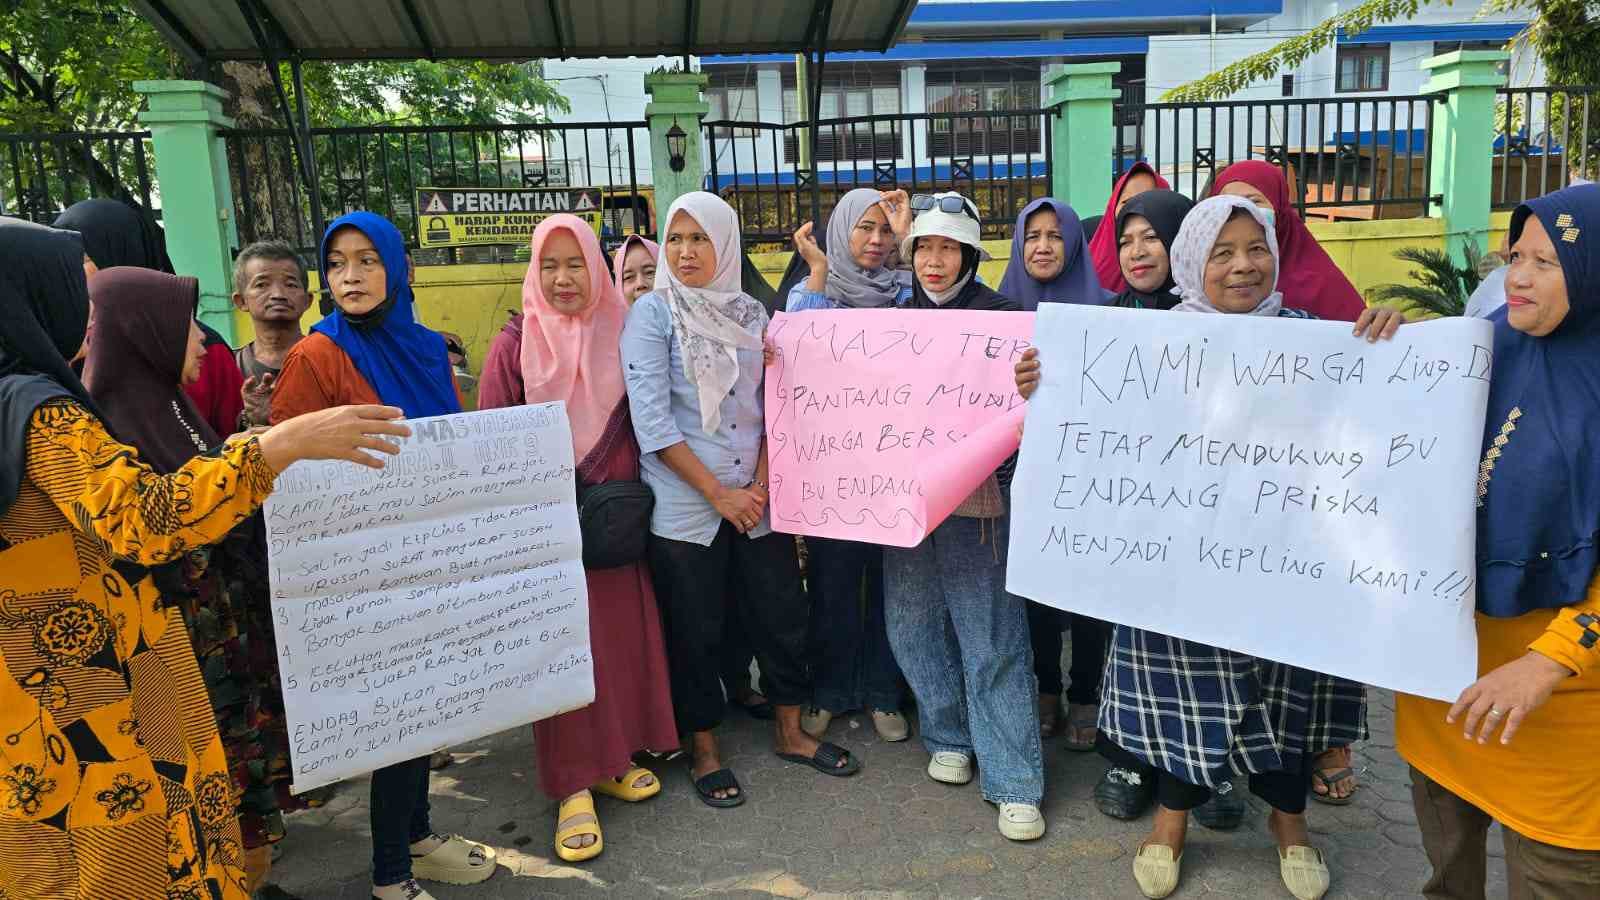 PERHATIAN
HARAP KUNCI
KENDARAAN
MASYARAKAT
JLN. PERWIRA II LINK 9
KAMI MEWAKILI SUARA RAKYAT
KAMI tidak mau SaLim menjadi KPLing
DIKARNAKAN
1. SaLim jadi KEPLING Tidak Amanah
2. URUSAN SURAT mengurat SUSAH
3 masalah Bantuan Buat masarakat
tidak pernah sampay ke masarakat
4 Banyak Bantuan Ditimbun di Rumah
5 KELUHAN masarakat tidak pernah di
Dengar selama dia menjadi Kepling Kami
SUARA RAKyat Buat BUK
ENDAG BUKAN SaLim
Kami mau BUK Endang menjadi KPLING
Kami DI JLN PERWIRA II
MAJU TER
PANTANG MUND
WARGA BER
BU ENDANG
KAMI WARGA Ling. IX
TETAP MENDUKUNG BU
ENDANG PRISKA
MENJADI KEPLING KAMI !!!